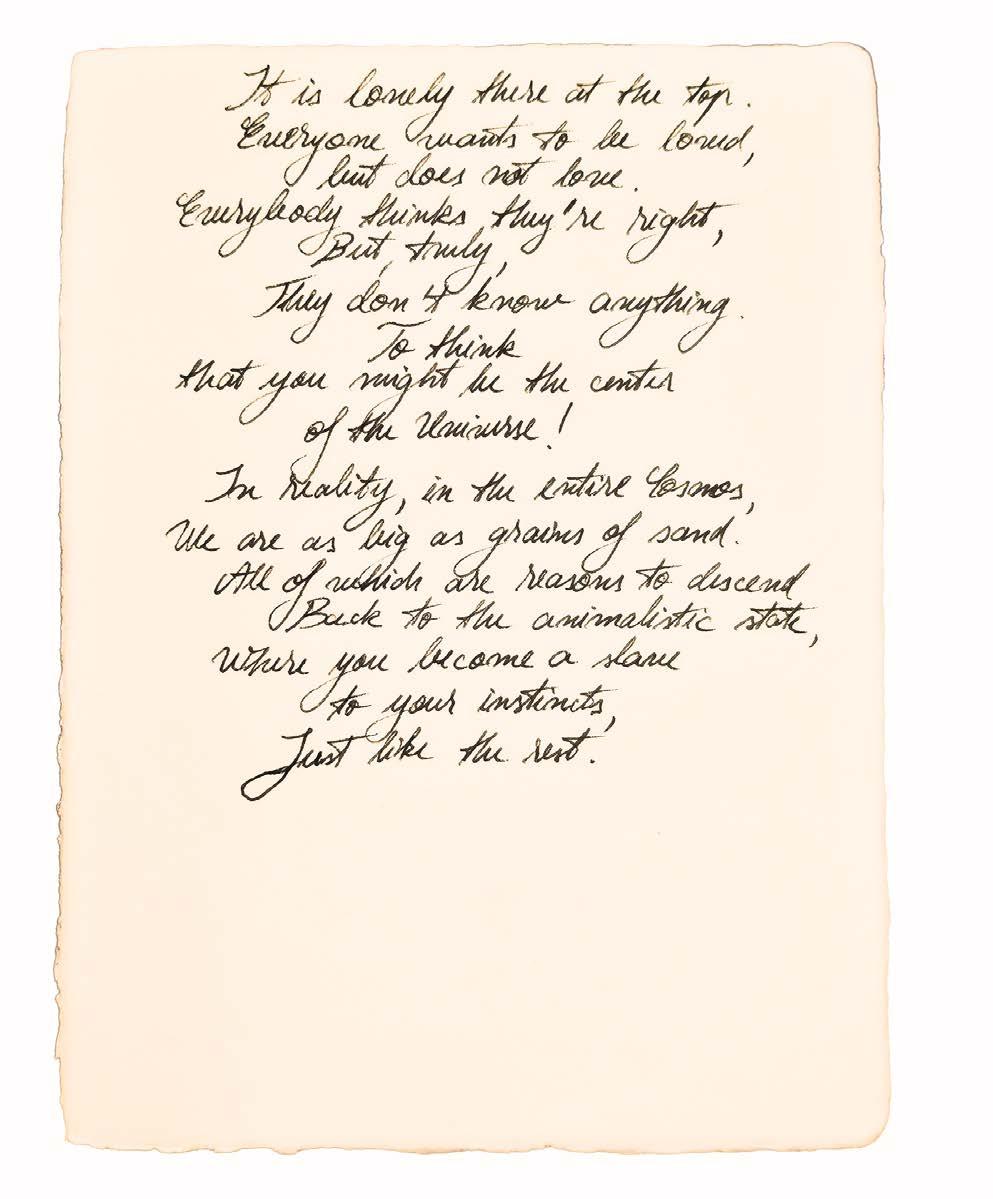 It is lonely there at the top.
Everyone wants to be loved,
but does not love.
Everybody thinks they're right,
But, truly,
They don't know anything.
To think
that you might be the center
of the Universe!
In reality, in the entire Cosmos,
We are as big as grains of sand.
All of which are reasons to descend
Back to the animalistic state,
Where you become a slave
to your instincts,
Just like the rest.